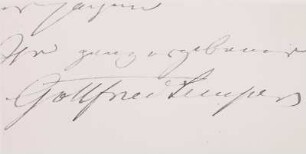 Ihr ganz ergebener
Gottfried Semper